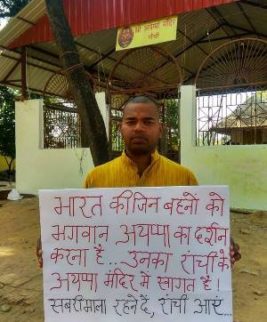 रांची
भारत की जिन बहनों को
भगवान अयप्पा का दर्शन
करना है.. उनका रांची के
अयप्पा मंदिर में स्वागत है!
सबरीमाला रहने दें, रांची आएं...